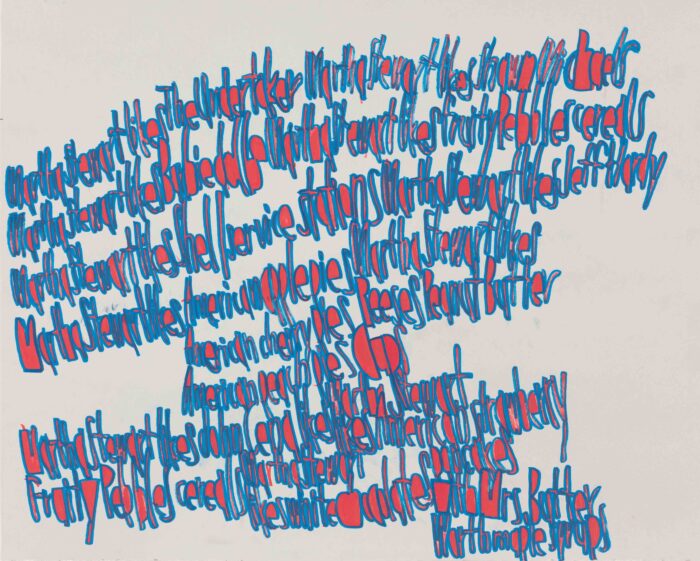 Martha Stewart likes The Undertaker Martha Stewart likes
Martha Stewart likes Barbie Martha Stewart likes Fruity Pebbles cereals
Martha Stewart likes Shell service stations Martha Stewart likes Jeff Hardy
Martha Stewart likes American apple pies Martha Stewart likes
American cherry pies Reeses Peanut Butter
American peach pies
Martha Stewart likes John Cena Martha Stewart
likes American strawberry
Fruity Pebbles cereals Martha Stewart
likes white with Mrs. Butter
Worth maple syrups